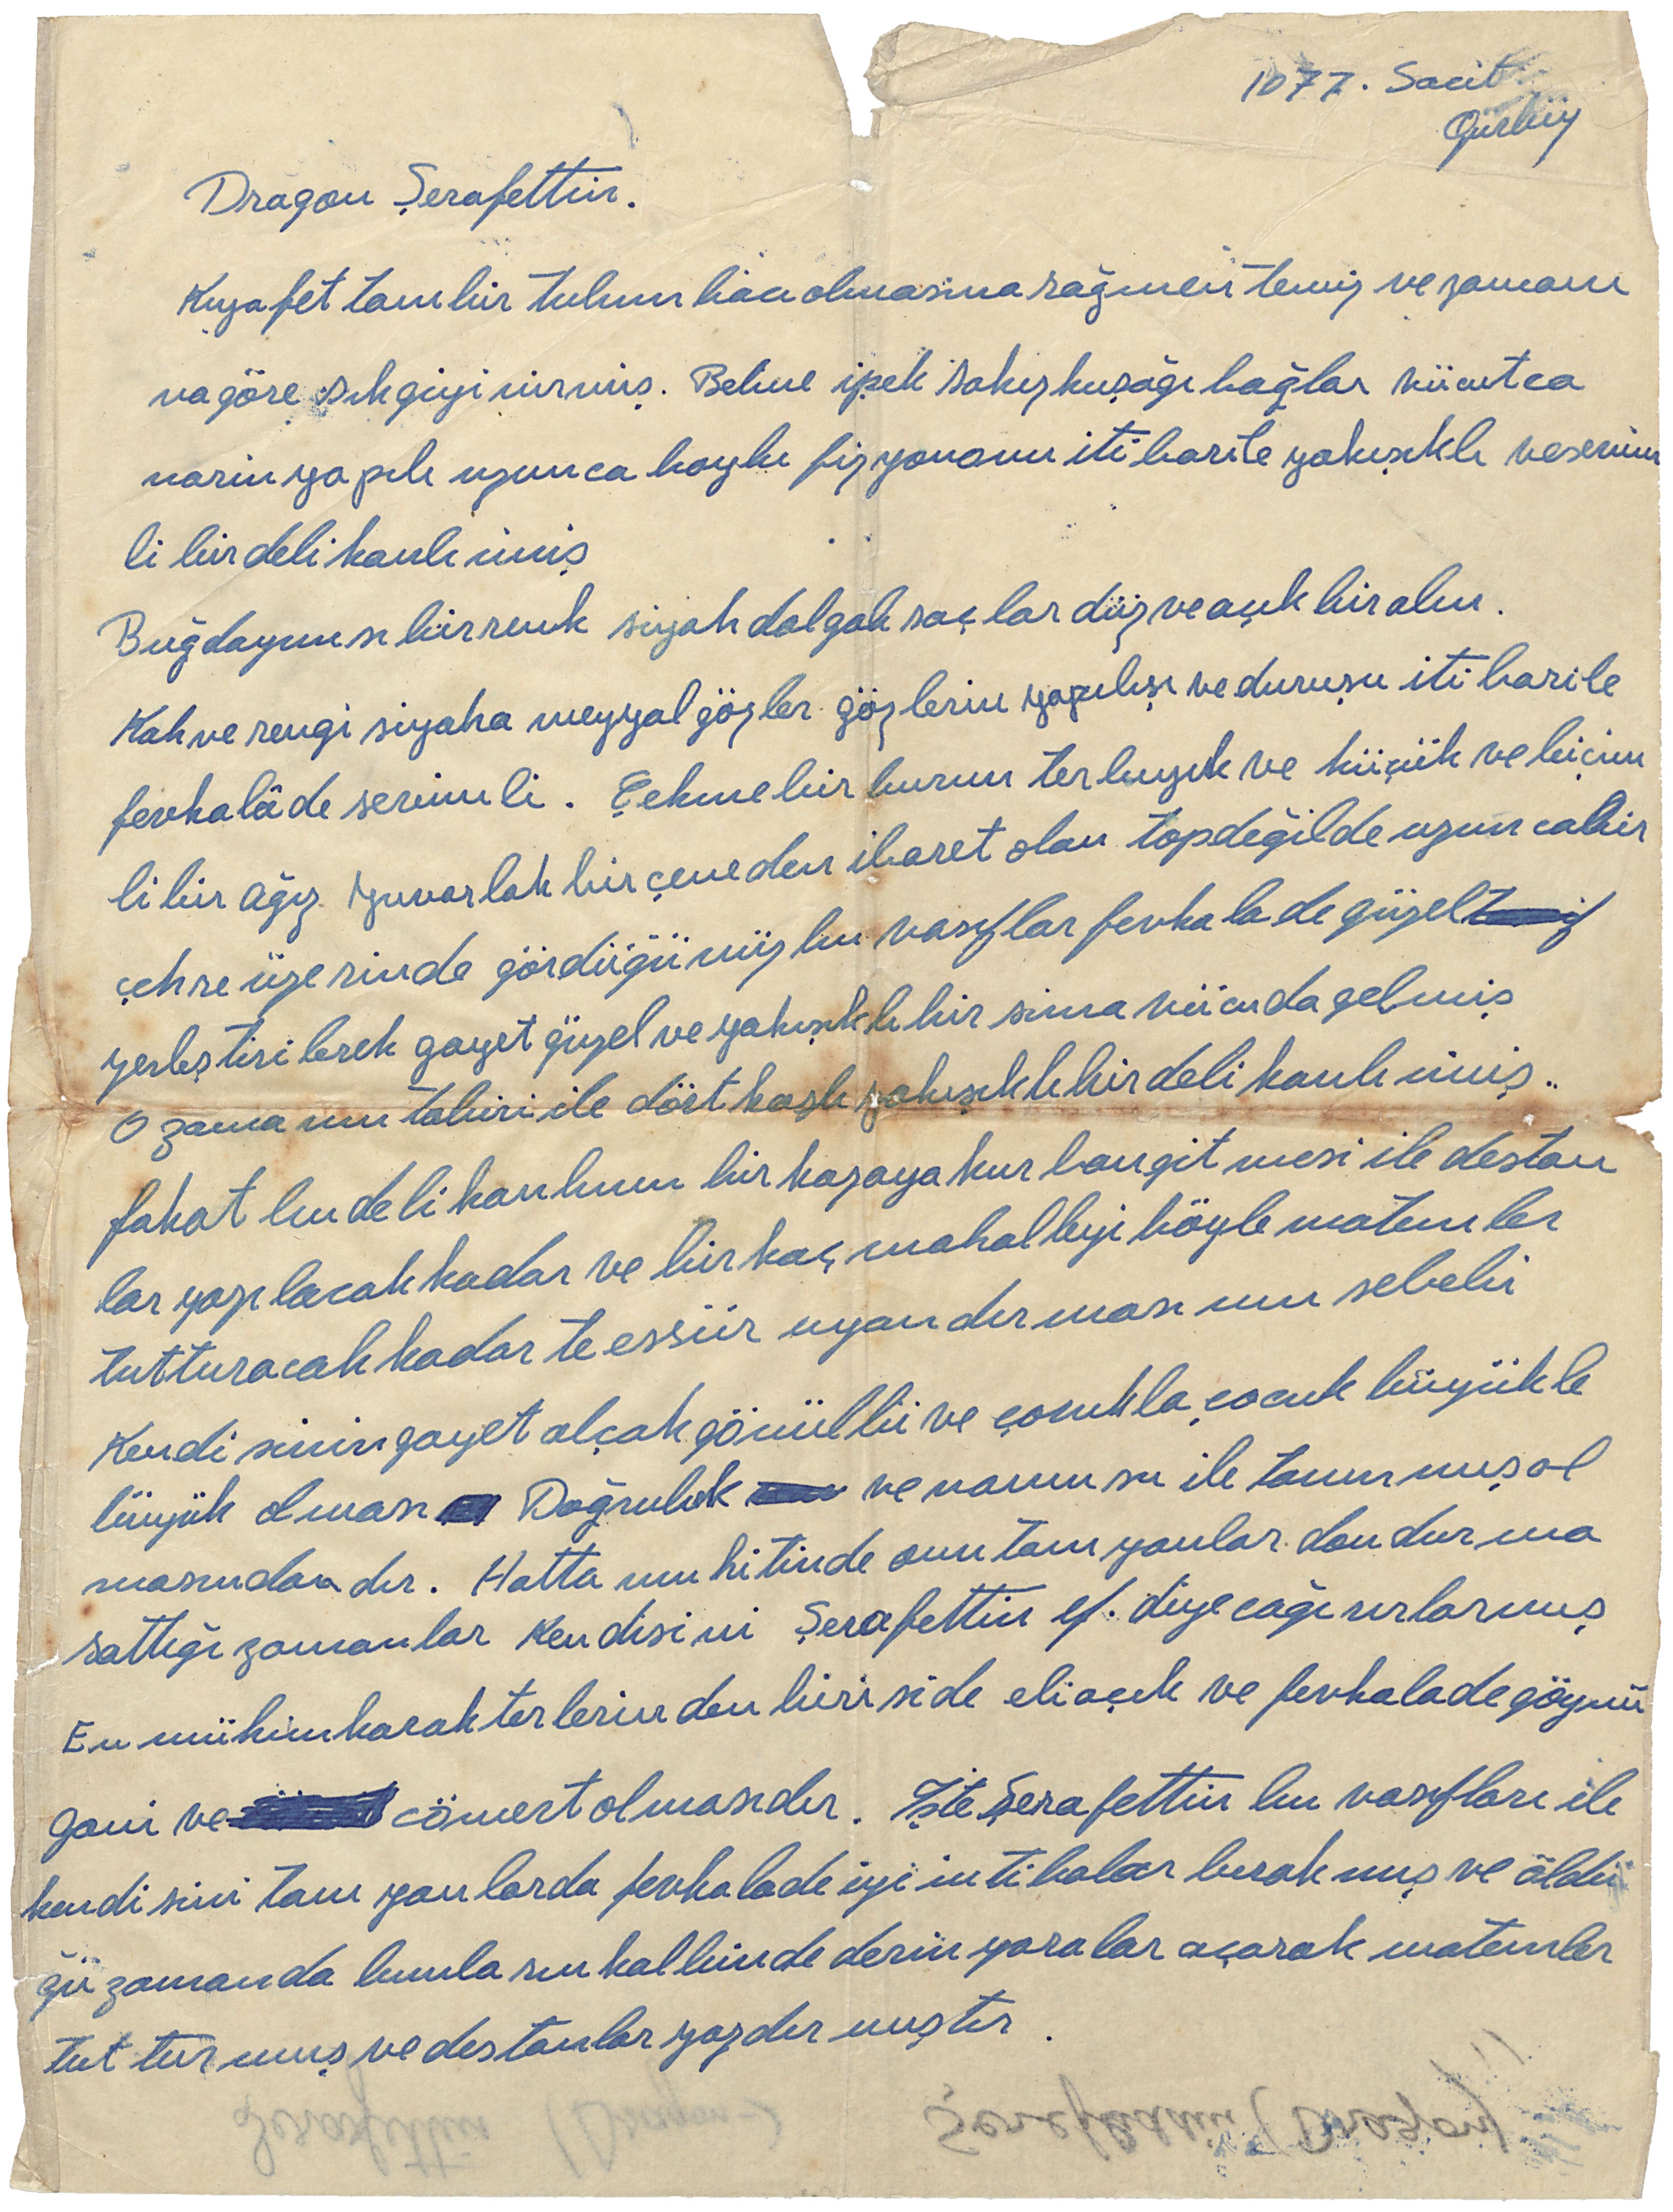 1077. Sacit
Gürbüy
Dragon Şerafettin.
Kıyafet tam bir tulumbacı olmasına rağmen temiz ve zamanı
na göre şık giyinirmiş. Beline ipek sakız kuşağı bağlar vücutca
narin yapılı uzunca boylu fizyonomi itibarile yakışıklı ve sevim
li bir delikanlı imiş
Buğdayımsı bir renk siyah dalgalı saçlar düz ve açık bir alın.
Kahve rengi siyaha meyyal gözler gözlerin yapılışı ve duruşu itibarile
fevkalâde sevimli. Çekme bir burun ter bıyık ve küçük ve biçim
li bir ağız yuvarlak bir çeneden ibaret olan top değilde uzunca bir
çehre üzerinde gördüğünüz bu vasıflar fevkalade güzel
yerleştirilerek gayet güzel ve yakışıklı bir sima vücuda gelmiş
O zamanın tabiri ile dört kaşlı yakışıklı bir delikanlı imiş..
fakat bu delikanlının bir kazaya kurban gitmesi ile destan
lar yazılacak kadar ve bir kaç mahalleyi böyle matemler
tutturacak kadar teessür uyandırmasının sebebi
Kendisinin gayet alçak gönüllü ve çocukla çocuk büyükle
büyük olması Doğruluk ve namusu ile tanınmış ol
masındandır. Hatta muhitinde onu tanıyanlar dondurma
sattığı zamanlar Kendisini Şerafettin ef. diye cağırırlarmış
En mühim karakterlerinden biriside eli açık ve fevkalade göynü
gani ve cömert olmasıdır. İşte Şerafettin bu vasıfları ile
kendisini tanıyanlarda fevkalade iyi intibalar bırakmış ve öldü
ğü zamanda bunların kalbinde derin yaralar açarak matemler
tutturmuş ve destanlar yazdırmıştır.